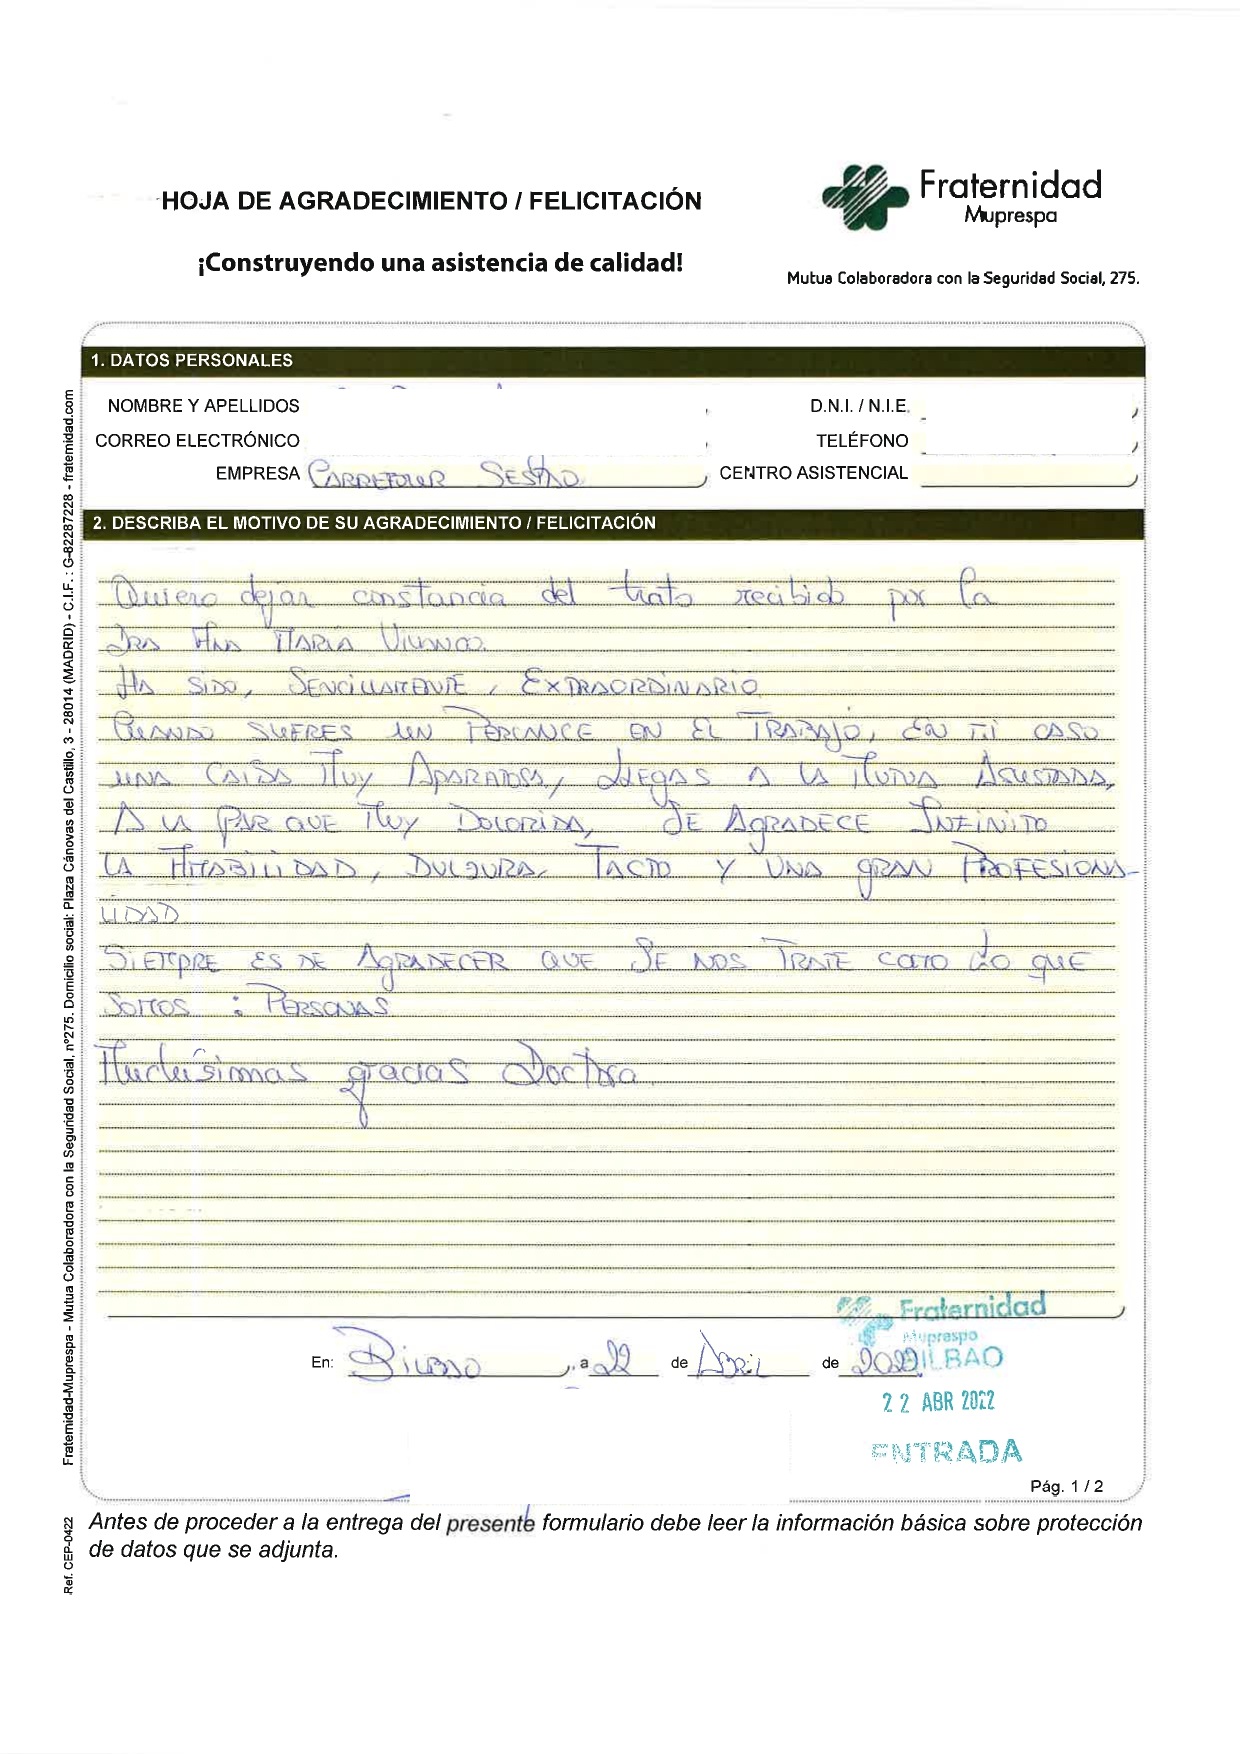 HOJA DE AGRADECIMIENTO / FELICITACIÓN
¡Construyendo una asistencia de calidad!
Fraternidad
Muprespa
Mutua Colaboradora con la Seguridad Social, 275.
1. DATOS PERSONALES
NOMBRE Y APELLIDOS
D.N.I. / N.I.E.
CORREO ELECTRÓNICO
TELÉFONO
EMPRESA CARREFOUR SESTAO
CENTRO ASISTENCIAL
2. DESCRIBA EL MOTIVO DE SU AGRADECIMIENTO / FELICITACIÓN
Quiero dejar constancia del trato recibido por la
DRA ANA MARIA VIVANCO.
HA SIDO, SENCILLAMENTE, EXTRAORDINARIO
CUANDO SUFRES UN PERCANCE EN EL TRABAJO, EN MI CASO
UNA CAIDA MUY APARATOSA, LLEGAS A LA MUTUA ASUSTADA,
A LA PAR QUE MUY DOLORIDA, SE AGRADECE INFINITO
LA AMABILIDAD, DULZURA, TACTO Y UNA GRAN PROFESIONA-
LIDAD
SIEMPRE ES DE AGRADECER QUE SE NOS TRATE COMO LO QUE
SOMOS : PERSONAS
Muchísimas gracias Doctora
Fraternidad
Muprespa
BILBAO
En: BILBAO, a 22 de ABRIL de 2022
22 ABR 2022
ENTRADA
Pág. 1 / 2
Antes de proceder a la entrega del presente formulario debe leer la información básica sobre protección
de datos que se adjunta.
Fraternidad-Muprespa - Mutua Colaboradora con la Seguridad Social, nº275. Domicilio social: Plaza Cánovas del Castillo, 3 - 28014 (MADRID) - C.I.F. : G-82287228 - fraternidad.com
Ref. CEP-0422